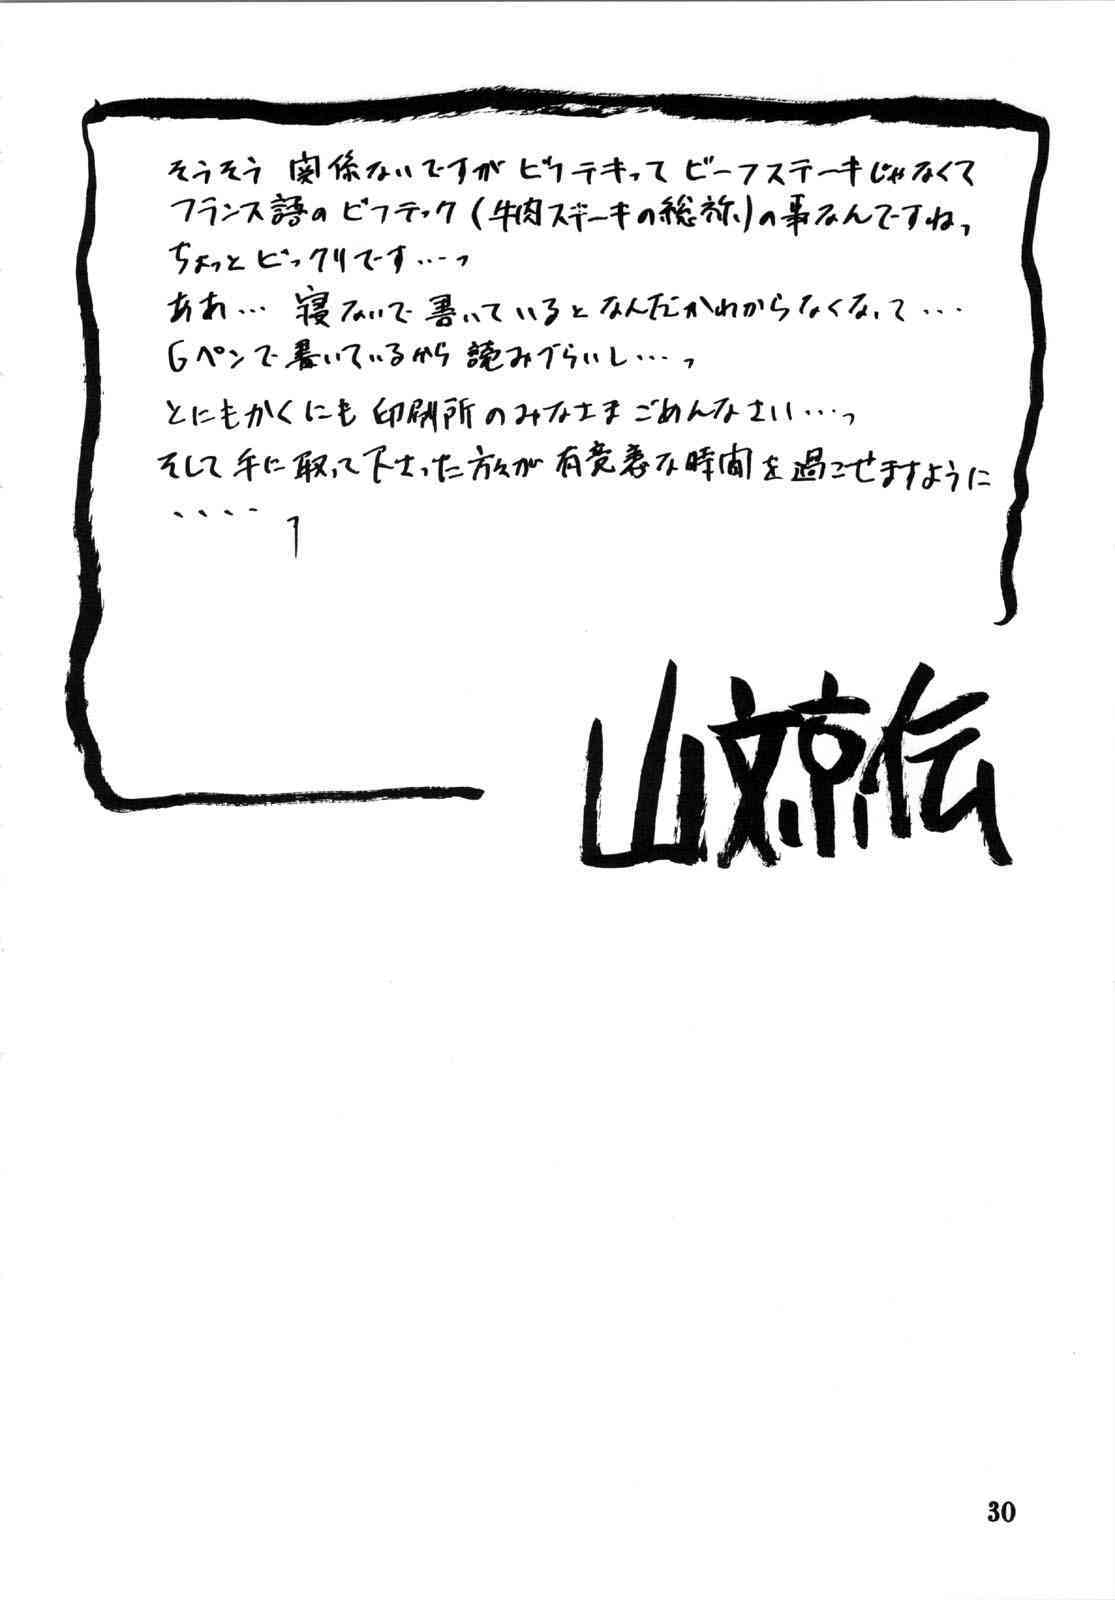 そうそう 関係ないですが ビフテキって ビーフステーキじゃなくて
フランス語の ビフテック (牛肉ステーキの総称)の事なんですねっ
ちょっと ビックリです…っ
ああ… 寝ないで 書いていると なんだかわからなくなって…
Gペンで書いているから 読みづらいし…っ
とにもかくにも 印刷所の みなさま ごめんなさい…っ
そして 手に取って下さった方々が 有意義な時間を過ごせますように
・・・・っ
山文京伝
30